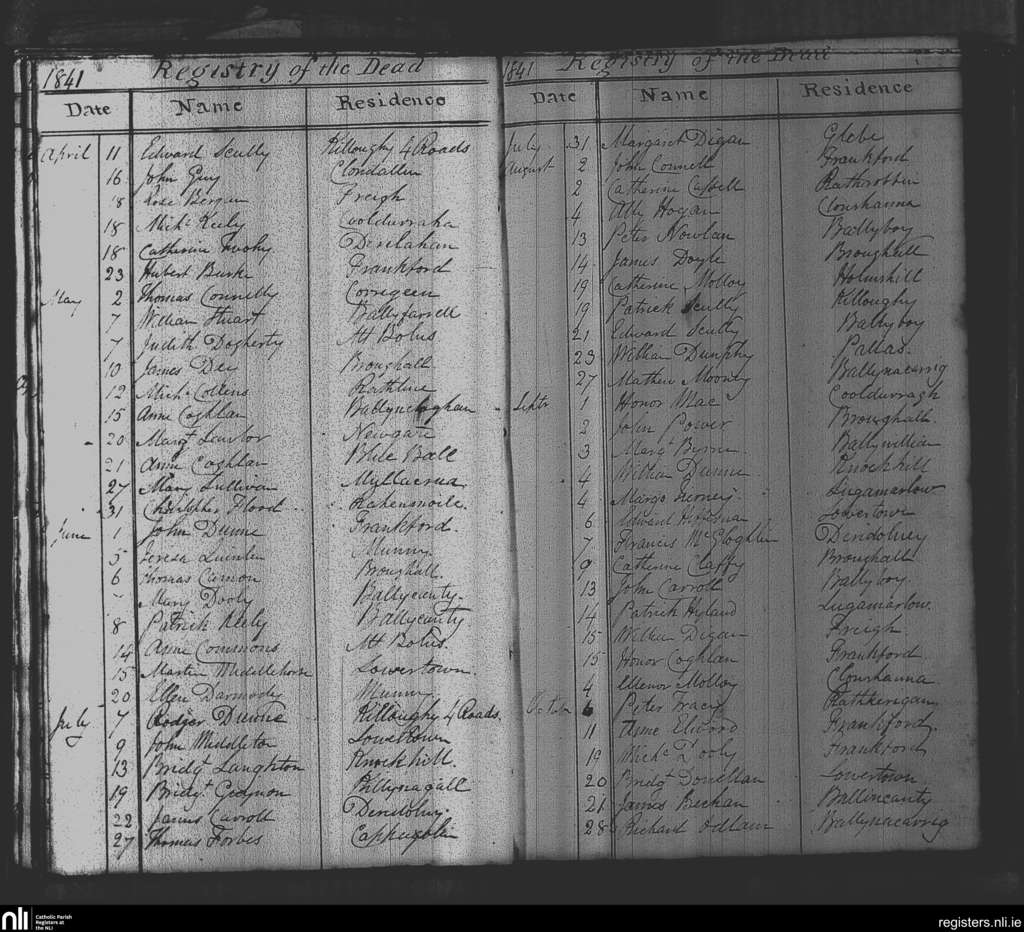 1841 Registry of the Dead
Date Name Residence
April 11 Edward Scully Killoughy 4 Roads
16 John Guy Clondallen
18 Rose Bergin Freigh
18 Michl Keily Cooldurraha
18 Catherine Derrilahan
23 Hubert Burke Frankford
May 2 Thomas Connelly Corrigeen
7 William Stuart Ballyfarrell
7 Judith Dogherty Mt Bolus
10 James Dee Broughall
12 Michl Collens Rathlue
15 Anne Coghlan
20 Margt Lawlor Newgate
21 Anne Coghlan Blile Ball
27 Mary Sullivan Mullacrua
31 Christopher Flood
June 1 John Dunne Frankford.
5 Teresa Quinlin Munny
6 Thomas Broughall.
Mary Dooly Ballycanty
8 Patrick Kiely Ballycanty
14 Anne Commons Mt Bolus.
15 Martin Middlehouse Lowertown
20 Ellen Darmody Munny
July 7 Rodger Dunne Killoughy 4 Roads.
9 John Middleton Lowertown
13 Bridgt Langhton Knockhill.
19 Bridgt Killynagall
22 James Carroll Dendolny
27 Thomas Forbes
1841 Registry of the Dead
Date Name Residence
July 31 Margaret Digan Glebe
August 2 John Connell Frankford
2 Catherine Cassell Rathrobbin
4 Ally Hogan Clonshanna
13 Peter Nowlan Ballyboy
14 James Doyle Broughill
19 Catherine Molloy Holmshill
19 Patrick Scully Killoughy
21 Edward Scully Ballyboy
23 William Dunphy Pallas.
27 Mathew Mooney Ballynacarrig
Septr 1 Honor Mac Cooldurragh
2 John Power Broughall
3 Margt Byrne Ballywillian
4 William Dunne Knockhill
4 Margt Tierney Lugamarlow
6 Edward Heffernan Lowertown
7 Francis McGloghlin Dendolney
9 Catherine Claffy Broughall
13 John Carroll Ballyboy
14 Patrick Hyland Lugamarlow.
15 William Digan Freigh.
15 Honor Coghlan Frankford
4 Ellenor Molloy Clonshanna
October 6 Peter Tracy Rathkeregan
11 Anne Elwood Frankford
19 Michl Dooly Frankford
20 Bridgt Donellan Lowertown
21 James Beehan Ballincanty
28 Richard Odlam Ballynacarrig
nli Catholic Parish
Registers at
the NLI
registers.nli.ie